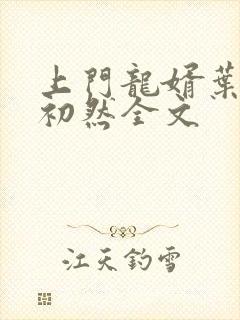 上門龍婿葉
初然全文
江天釣雪